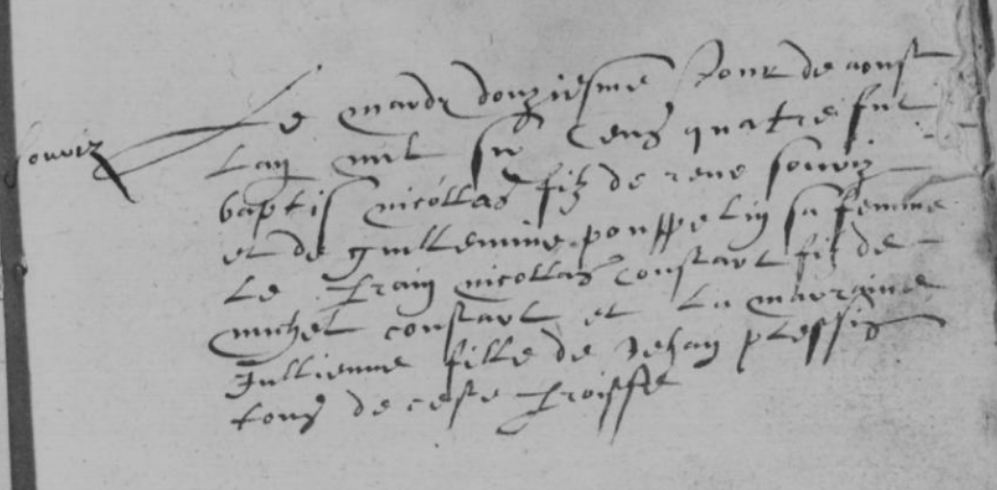 souriz
Le mardy douziesme jour de aoust
lan mil six cens quatre fut
baptisé nicollas filz de rene souriz
et de guillemine pouppelin sa femme
Le parrain nicollas constart filz de
michel constart et La marraine
Jullienne fille de Jehan plessis
tous de ceste paroisse